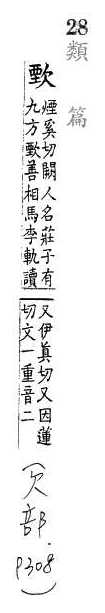 28
類篇
歅
煙奚切闕人名莊子有
九方歅善相馬李軌讀
又伊眞切又因蓮
切文一重音二
(欠部.
p308)